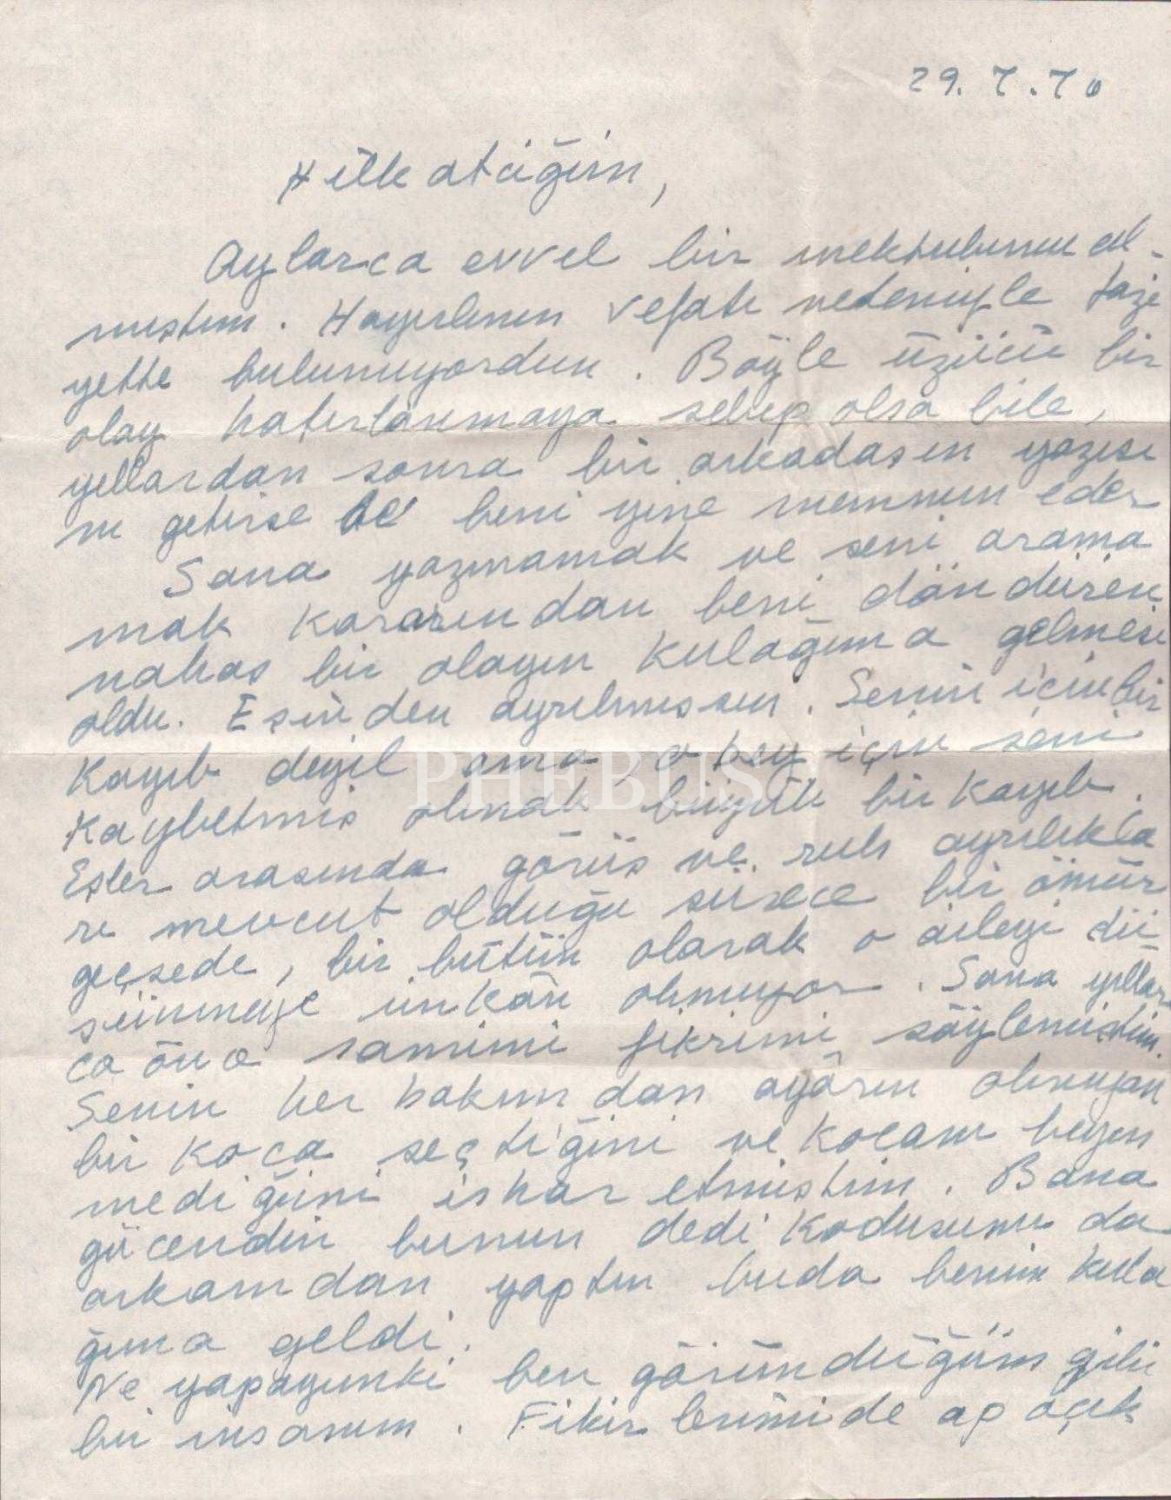 29.7.70
Hilkatciğim,
Aylarca evvel bir mektubunu al-
mıştım. Hayerlinin vefatı nedeniyle tazi
yette bulunuyordun. Böyle üzücü bir
olay hatırlanmaya sebep olsa bile,
yıllardan sonra bir arkadaşın yazısı
nı getirse de beni yine memnun eder
Sana yazmamak ve seni arama
mak kararından beni döndüren
nahoş bir olayın kulağıma gelmesi
oldu. Eşinden ayrılmışsın. Senin için bir
kayıb deyil ama o bey için seni
kaybetmiş olmak büyük bir kayıb.
Eşler arasında görüş ve ruh ayrılıkla
rı mevcut olduğu sürece bir ömür
geçsede, bir bütün olarak o aileyi dü
şünmeye imkân olmuyor. Sana yıllar
ca önce samimi fikrimi söylemiştim.
Senin her bakımdan ayârın olmayan
bir koca seçtiğini ve kocanı beyen
mediğimi ishar etmiştim. Bana
gücendin bunun dedi kodusunu da
arkamdan yaptın buda benim kula
ğıma geldi.
Ne yapayımki ben göründüğüm gibi
bir insanım. Fikirlerimide ap açık
PHEBUS